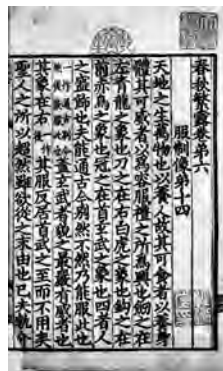 春秋繁露卷第六
服制像第十四
天地之生萬物也以養人故其可食者以養身
體其可威者以爲容服禮之所爲興也劒之在
左青龍之象也刀之在右白虎之象也鉤之在
前赤鳥之象也冠之在首玄武之象也四者人
之盛飾也夫能通古今別然不然乃能服此也
蓋玄武者貌之最嚴有威者也
其象在右一作後其服反居首武之至而不用矣
聖人之所以超然雖欲從之末由也已夫執介